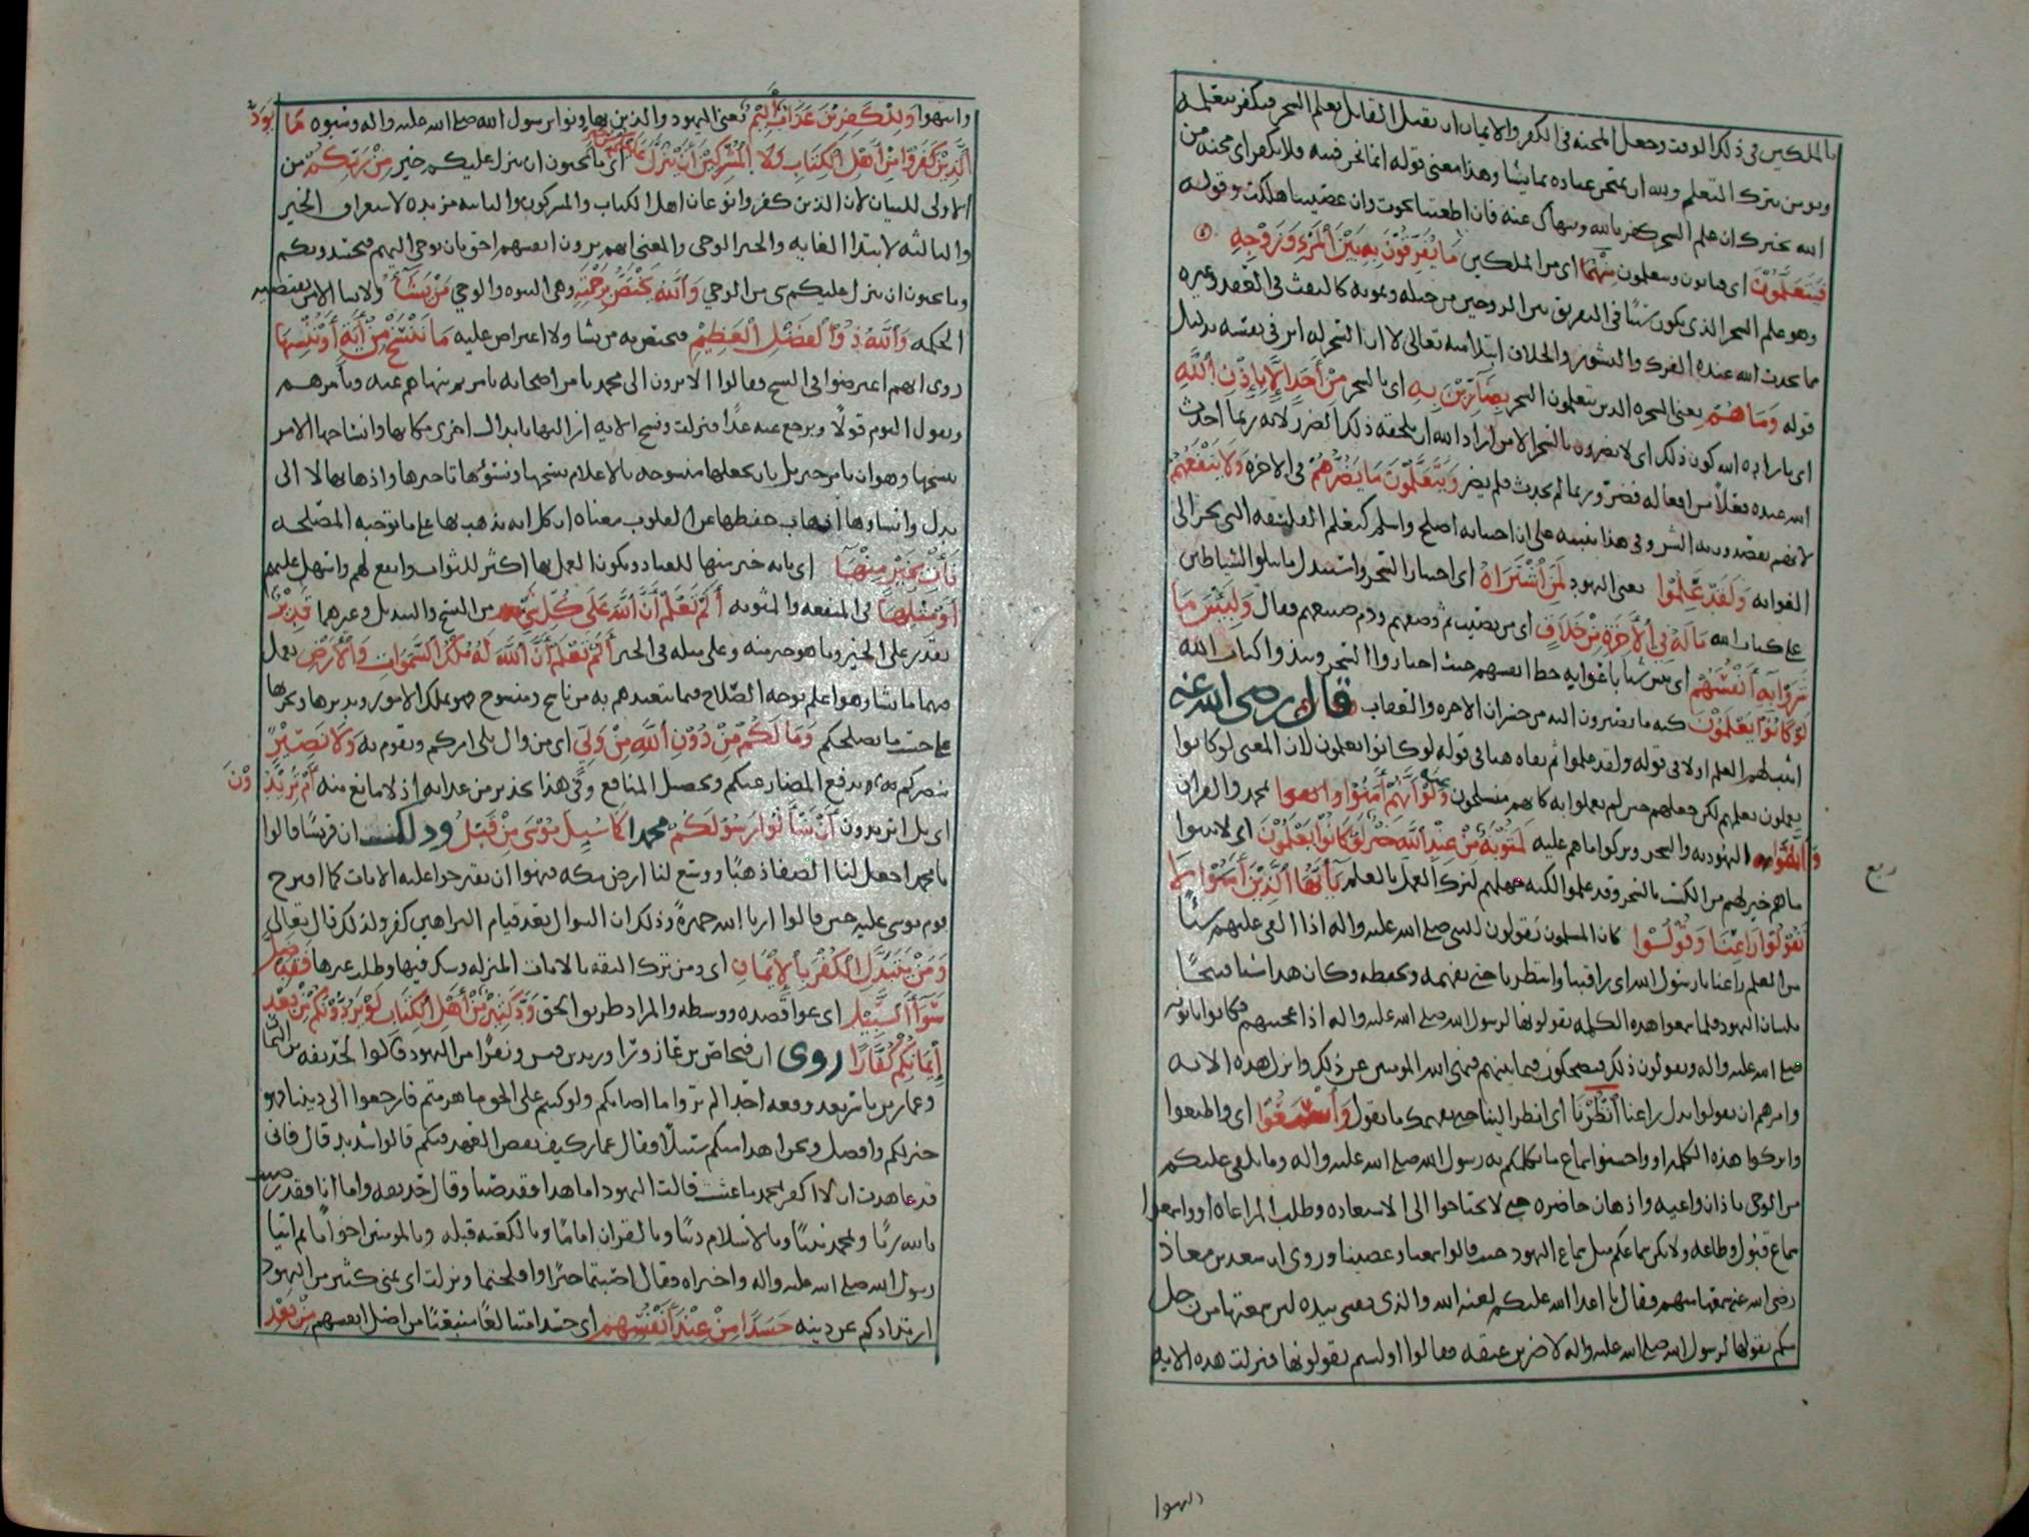 بالملكين في ذلك الوقت وجعل المحنة في الكفر والايمان ان يقبل القابل تعلم السحر فيكفر بتعلمه
ويومن بترك التعلم ولله ان يمتحن عباده بما يشا وهذا معنى قوله انما نحن فتنه فلا تكفر اي محنه من
الله نخبرك ان علم السحر كفر بالله وننهاك عنه فان اطعتنا نجوت وان عصيتنا هلكت وقوله
فَيَتَعَلَّمُوْنَ اي فياتون ويتعلمون مِنْهُمَا اى من الملكين مَا يُفَرِّقُوْنَ بِهِ بَيْنَ اَلْمَرْءِ وَزَوْجِهِ
وهو علم السحر الذى يكون سببًا في التفريق بين الزوجين من حيله وتمويه كالنفث في العقد وغيره
مما يحدث الله عنده الفرك والنشوز والخلاف ابتلا منه تعالى لا ان السحر له اثر في نفسه بدليل
قوله وَمَا هُمْ يعنى السحره الذين يتعلمون السحر بِضَآرِّيْنَ بِهِ اى بالسحر مِنْ أَحَدٍ إِلَّا بِإِذْنِ اَللَّهِ
اي باراده الله كون ذلك اى لا يضرون بالسحر الا من اراد الله ان يلحقه ذلك الضرر لانه ربما احدث
الله عنده فعلاً من افعاله فضرّ وربما لم يحدث فلم يضر وَيَتَعَلَّمُوْنَ مَا يَضُرُّهُمْ في الاخرة وَلَا يَنْفَعُهُمْ
لانهم يقصدون به الشر وفي هذا تنبيه على ان اجتنابه اصلح واسلم كتعلم الفلسفه التي تجر الى
الغوايه وَلَقَدْ عَلِمُوْا يعنى اليهود لَمَنِ اْشْتَرَاهُ اى اختار السحر واستبدل ما تتلوا الشياطين
على كتاب الله مَا لَهُ فِي اْلْأٓخِرَةِ مِنْ خَلَاقٍ اى من نصيب ثم وصفهم وذم صنيعهم فقال وَلَبِئْسَ مَا
شَرَوْا بِهِ أَنْفُسَهُمْ اى بئس شيا باعوا به حظ انفسهم حيث اختاروا السحر ونبذوا كتاب الله
لَوْ كَانُوْا يَعْلَمُوْنَ كنه ما يصيرون اليه من خسران الاخره والعقاب قال رضى الله عنه
اثبت لهم العلم اولا في قوله ولقد علموا ثم نفاه هنا في قوله لو كانوا يعلمون لان المعنى لو كانوا
يعملون بعلمهم لكن جعلهم حين لم يعملوا به كانهم منسلخون عنه وَلَوْ أَنَّهُمْ أَمَنُوْا واتقوا بمحمد والقران
وَاتَّقَوْا اليهوديه والسحر وتركوا ما هم عليه لَمَثُوْبَةٌ مِّنْ عِنْدِ اْللَّهِ خَيْرٌ لَّوْ كَانُوْا يَعْلَمُوْنَ اى لاثيبوا
ما هو خير لهم من الكسب بالسحر وقد علموا لكنه جهلهم لترك العمل بالعلم يَآ أَيُّهَا اْلَّذِيْنَ أٓمَنُوْا لَا
ربع
تَقُوْلُوْا رَاعِنَا وَقُوْلُوْا كان المسلمون يقولون للنبي صلى الله عليه واله اذا القى عليهم شيًا
من العلم راعنا يا رسول الله اى راقبنا وانتظرنا حتى نفهمه ونحفظه وكان هذا سبا قبيحًا
بلسان اليهود فلما سمعوا هذه الكلمه يقولونها لرسول الله صلى الله عليه واله اذا فكانوا ياتونه
صلى الله عليه واله ويقولون ذلك فيضحكون فيما بينهم فنهى الله المومنين عن ذلك وانزل هذه الايه
وامرهم ان يقولوا بدل راعنا اْنْظُرْنَا اى انظر الينا حتى نفهمك ما تقول وَاْسْمَعُوْا اى واطيعوا
واتركوا هذه الكلمه او واحسنوا سماع ما يكلمكم به رسول الله صلى الله عليه واله وما يلقى عليكم
من الوحى باذان واعيه واذهان حاضره حتى لا تحتاجوا الى الاستعاده وطلب المراعاه او واسمعوا
سماع قبول وطاعه ولا يكن سماعكم مثل سماع اليهود حيث قالوا سمعنا وعصينا وروى ان سعد بن معاذ
رضى الله عنه سمعها منهم فقال يا اعدا الله عليكم لعنه الله والذى نفسي بيده لين سمعتها من رجل
منكم يقولها لرسول الله صلى الله عليه واله لاضربن عنقه فقالوا اولستم تقولونها فنزلت هذه الايه
وانتهوا وَلِلْكٰفِرِيْنَ عَذَابٌ أَلِيْمٌ يعنى اليهود والذين تهاونوا برسول الله صلى الله عليه واله وسبوه مَا يَوَدُّ
اْلَّذِيْنَ كَفَرُوْا مِنْ أَهْلِ اْلْكِتَابِ وَلَا اْلْمُشْرِكِيْنَ أَنْ يُنَزَّلَ عَلَيْكُمْ مِنْ خَيْرٍ اى ما يحبون ان ينزل عليكم خير مِنْ رَبِّكُمْ من
الاولى للبيان لان الذين كفروا نوعان اهل الكتاب والمشركون والثانيه مزيده لاستغراق الخير
والثالثه لابتدا الغايه والخير الوحى والمعنى انهم يرون انفسهم احق بان يوحى اليهم فيحسدونكم
وما يحبون ان ينزل عليكم شى من الوحي وَاْللَّهُ يَخْتَصُّ بِرَحْمَتِهِ وهى النبوه والوحي مَنْ يَشَآءُ ولا يشا الا من تقتضيه
الحكمه وَاْللَّهُ ذُوْ اْلْفَضْلِ اْلْعَظِيْمِ فيختص به من يشا ولا اعتراض عليه مَا نَنْسَخْ مِنْ أٓيَةٍ أَوْ نُنْسِهَا
روى انهم اعترضوا في النسخ وقالوا الا ترون الى محمد يامر اصحابه بامر ثم ينهاهم عنه ويأمرهم
ويقول اليوم قولًا ويرجع عنه غدًا فنزلت ونسخ الايه ازالتها بابدال اخرى مكانها وانساخها الامر
بنسخها وهو ان يامر جبريل بان يجعلها منسوخه بالاعلام بنسخها ونسؤها تاخيرها واذهابها لا الى
بدل وانساوها اذهاب حفظها عن القلوب معناه ان كل ايه نذهب بها على ما توجبه المصلحه
نَأْتِ بِخَيْرٍ مِنْهَآ اى بايه خير منها للعباد ويكون العمل بها اكثر للثواب وانفع لهم واسهل عليهم
أَوْ مِثْلِهَا في المنفعه والمثوبه أَلَمْ تَعْلَمْ أَنَّ اْللَّهَ عَلَى كُلِّ شَيْءٍ من النسخ والتبديل وغيرهما قَدِيْرٌ
يقدر على الخير وما هو خير منه وعلى مثله في الخير أَلَمْ تَعْلَمْ أَنَّ اْللَّهَ لَهُ مُلْكُ اْلسَّمٰوَاتِ وَاْلْأَرْضِ يفعل
فيهما ما يشا وهو اعلم بوجه الصلاح فيما يتعبدهم به من ناسخ ومنسوخ فهو يملك الامور ويدبرها ويجريها
على حسب ما يصلحكم وَمَا لَكُمْ مِنْ دُوْنِ اْللَّهِ مِنْ وَلِيٍّ اى من وال يلى امركم ويقوم به وَلَا نَصِيْرٍ
ينصركم ويدفع المضار عنكم ويحصل المنافع وفي هذا تحذير من عذابه اذ لا مانع منه أَمْ تُرِيْدُوْنَ
اى بل اتريدون أَنْ تَسْأَلُوْا رَسُوْلَكُمْ محمدا كَمَا سُئِلَ مُوْسَى مِنْ قَبْلُ وذلك ان قريشًا قالوا
يا محمد اجعل لنا الصفا ذهبًا ووسّع لنا ارض مكه فنهوا ان يقترحوا عليه الايات كما اقترح
قوم موسى عليه حين قالوا ارنا الله جهرةً وذلك ان السوال بعد قيام البراهين كفر ولذلك قال تعالى
وَمَنْ يَتَبَدَّلِ اْلْكُفْرَ بِاْلْإِيْمَانِ اى ومن ترك الثقه بالايات المنزله وشك فيها وطلب غيرها فَقَدْ ضَلَّ
سَوَآءَ اْلسَّبِيْلِ اى قصده ووسطه والمراد طريق الحق وَدَّ كَثِيْرٌ مِّنْ أَهْلِ اْلْكِتَابِ لَوْ يَرُدُّوْنَكُمْ مِّنْ بَعْدِ
إِيْمَانِكُمْ كُفَّارًا روى ان فنحاص بن عازورا وزيد بن قيس ونفرًا من اليهود قالوا لحذيفه بن اليمان
وعمار بن ياسر بعد وقعه احد الم تروا ما اصابكم ولو كنتم على الحق ما هزمتم فارجعوا الى ديننا فهو
خير لكم وافضل ونحن اهدا منكم سبيلًا فقال عمار كيف نقض العهد فيكم قالوا شديد قال فانى
قد عاهدت ان لا اكفر بمحمد ما عشت فقالت اليهود اما هذا فقد صبا وقال حذيفه واما انا فقد رضيت
بالله ربًا وبمحمد نبيًا وبالاسلام دينًا وبالقران امامًا وبالكعبه قبله وبالمومنين اخوانًا ثم اتيا
رسول الله صلى الله عليه واله واخبراه فقال اصبتما خيرًا وافلحتما ونزلت اى تمنى كثير من اليهود
ارتدادكم عن دينه حَسَدًا مِنْ عِنْدِ أَنْفُسِهِم اى حسدا متبالغًا منبعثًا من اصل انفسهم مِنْ بَعْدِ